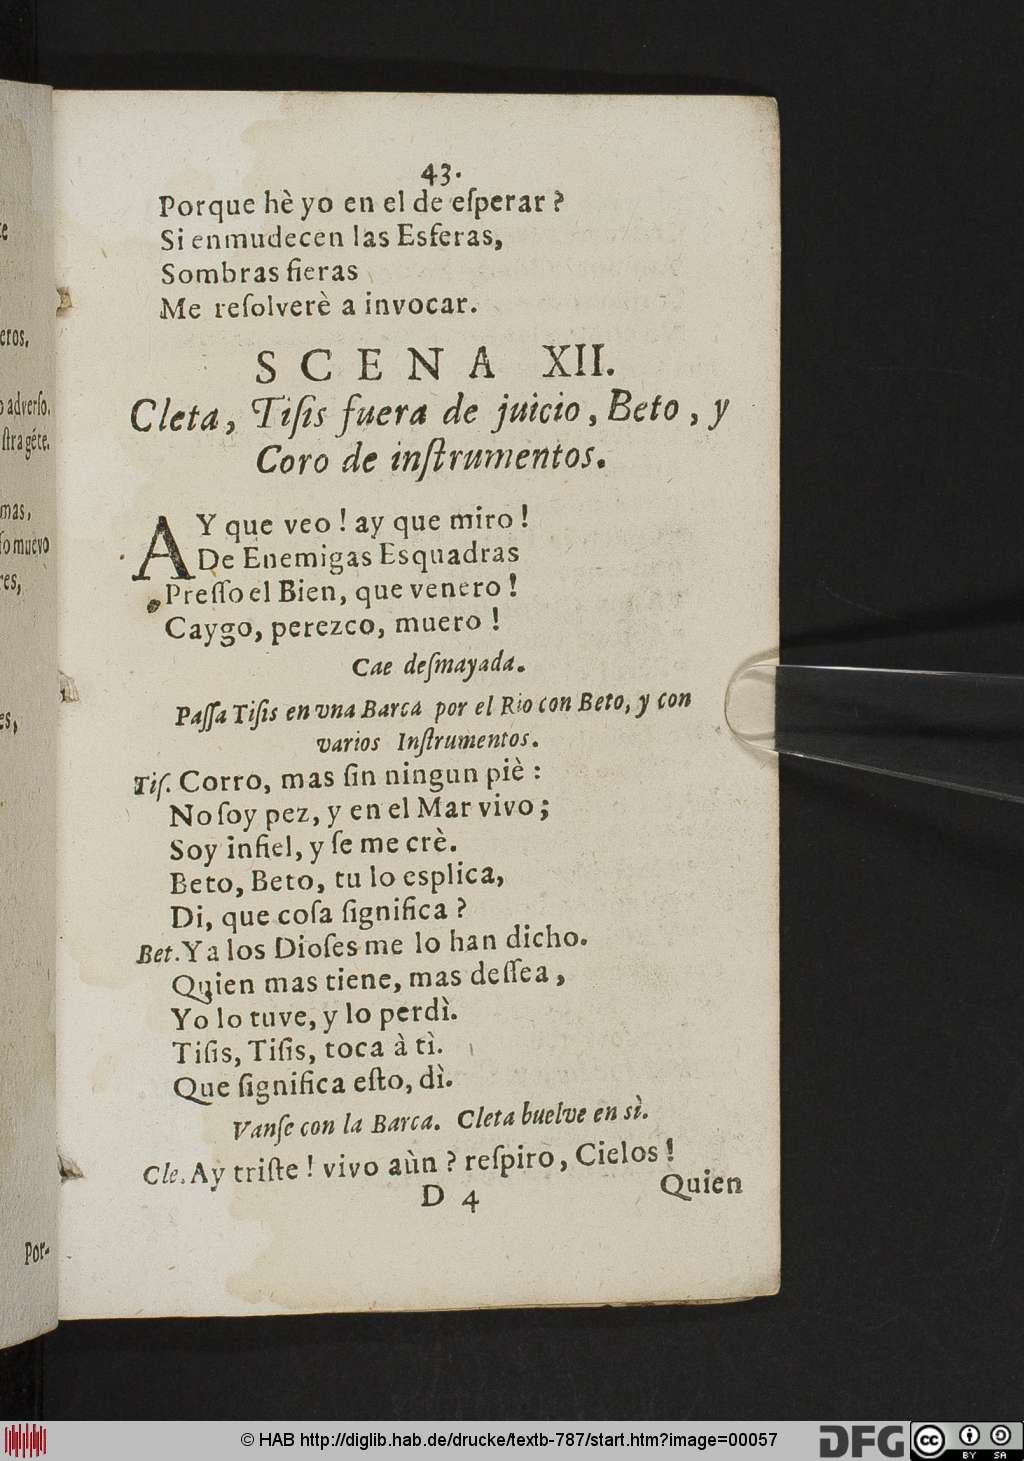 43.
Porque hè yo en el de eſperar ?
Si enmudecen las Esferas,
Sombras fieras
Me reſolverè a invocar.
SCENA XII.
Cleta, Tiſis fuera de juicio, Beto, y
Coro de inſtrumentos.
AY que veo ! ay que miro !
De Enemigas Esquadras
Preſſo el Bien, que venero !
Caygo, perezco, muero !
Cae deſmayada.
Paſſa Tiſis en vna Barca por el Rio con Beto, y con
varios Inſtrumentos.
Tiſ. Corro, mas ſin ningun piè :
No ſoy pez, y en el Mar vivo;
Soy infiel, y ſe me crè.
Beto, Beto, tu lo esplica,
Di, que coſa ſignifica ?
Bet. Ya los Dioſes me lo han dicho.
Quien mas tiene, mas deſſea,
Yo lo tuve, y lo perdì.
Tiſis, Tiſis, toca à tì.
Que ſignifica eſto, dì.
Vanſe con la Barca. Cleta buelve en sì.
Cle. Ay triſte ! vivo aùn ? reſpiro, Cielos !
D 4
Quien
eros.
adverſo.
ſtra gẽte.
mas,
ſo muevo
res,
es,
Por-
© HAB http://diglib.hab.de/drucke/textb-787/start.htm?image=00057
DFG
cc
BY SA